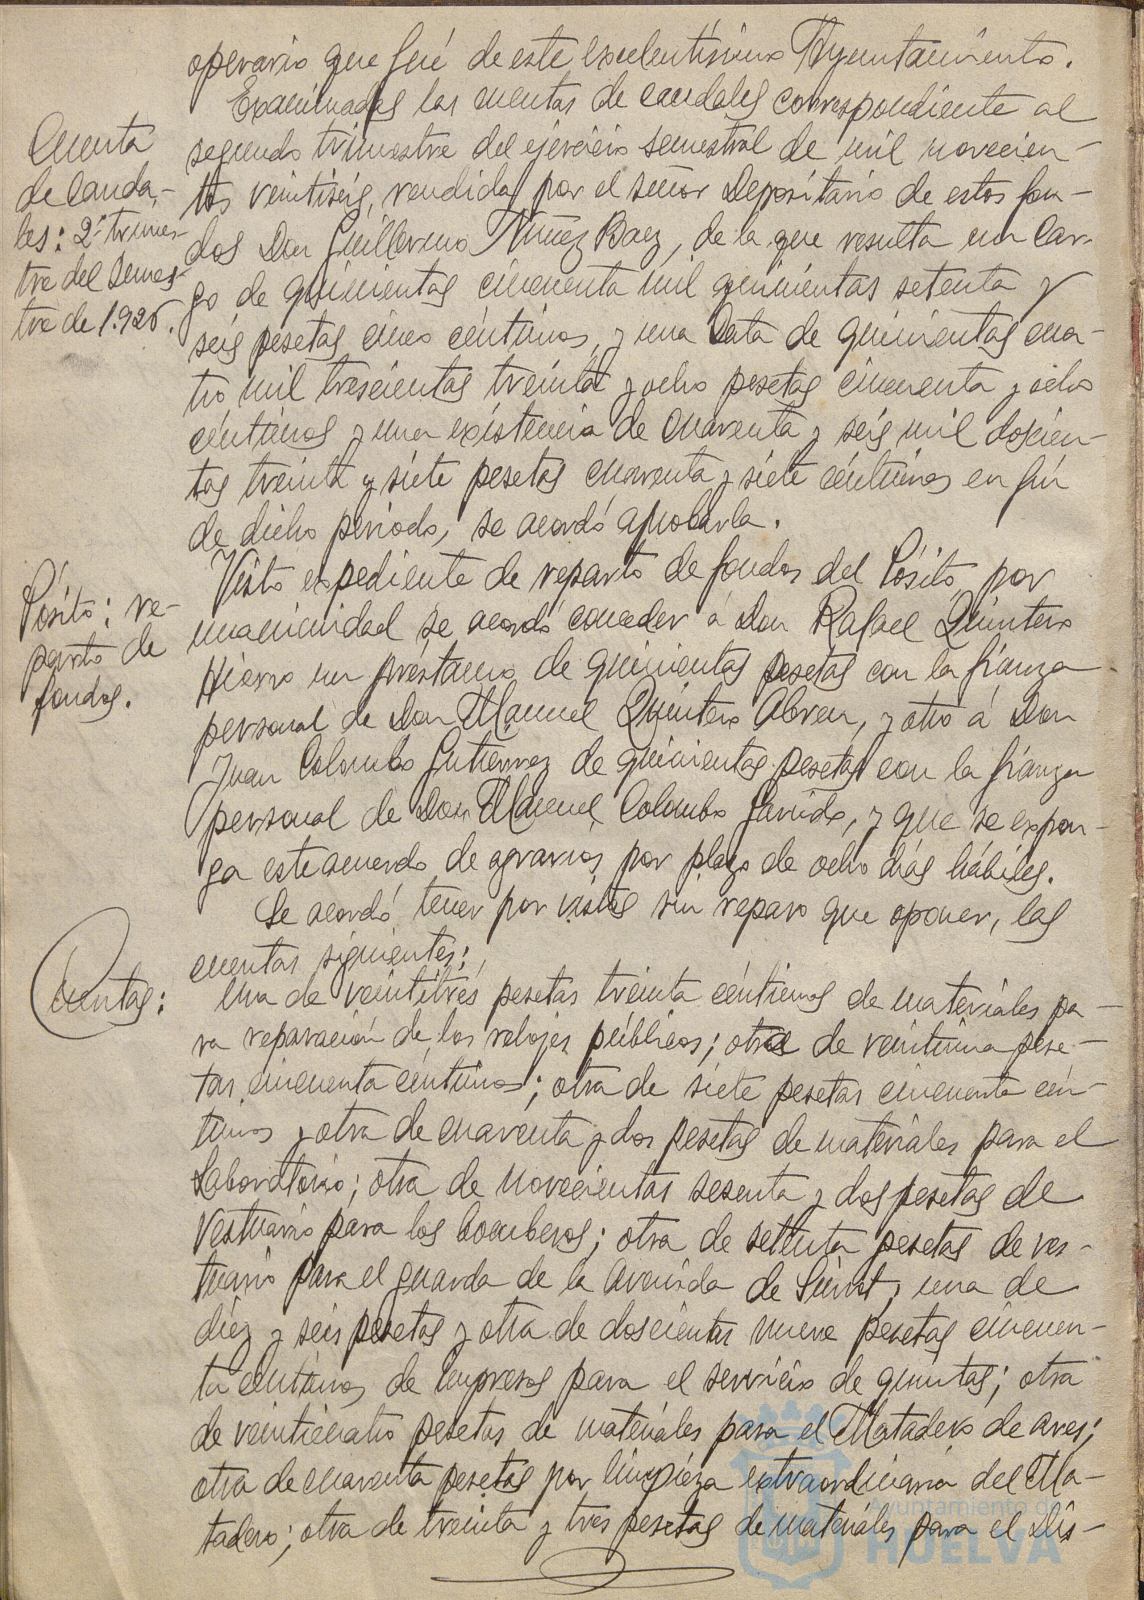 operario que fué de este Excelentísimo Ayuntamiento.
Examinadas las cuentas de caudales correspondiente al
Cuenta
de Cauda-
les: 2º trimes-
tre del Semes-
tre de 1.926.
segundo trimestre del ejercicio semestral de mil novecien-
tos veintiseis, rendida por el señor Depositario de estos fon-
dos Don Guillermo Núñez Baez, de la que resulta un Car-
go de quinientas cincuenta mil quinientas setenta y
seis pesetas cinco céntimos, y una Data de quinientas cua-
tro mil trescientas treinta y ocho pesetas cincuenta y ocho
céntimos y una existencia de cuarenta y seis mil doscien-
tas treinta y siete pesetas cuarenta y siete céntimos en fin
de dicho periodo, se acordó aprobarla.
Pósito: re-
parto de
fondos.
Visto expediente de reparto de fondos del Pósito, por
unanimidad se acordó conceder á Don Rafael Quintero
Hierro un préstamo de quinientas pesetas con la fianza
personal de Don Manuel Quintero Abreu, y otro á Don
Juan Colombo Gutierrez de quinientas pesetas con la fianza
personal de Don Manuel Colombo Garrido, y que se expon-
ga este acuerdo de agravios por plazo de ocho días hábiles.
Se acordó tener por vistas sin reparo que oponer, las
cuentas siguientes:
Cuentas:
Una de veintitrés pesetas treinta céntimos de materiales pa-
ra reparación de los relojes públicos; otra de veintiuna pese-
tas cincuenta céntimos; otra de siete pesetas cincuenta cén-
timos y otra de cuarenta y dos pesetas de materiales para el
Laboratorio; otra de novecientas sesenta y dos pesetas de
vestuario para los bomberos; otra de setenta pesetas de ves-
tuario para el guarda de la Avenida de Siurot, una de
diez y seis pesetas y otra de doscientas nueve pesetas cincuen-
ta céntimos de impresos para el servicio de quintas; otra
de veinticuatro pesetas de materiales para el Matadero de aves;
otra de cuarenta pesetas por limpieza extraordinaria del Ma-
tadero; otra de treinta y tres pesetas de materiales para el Dis-
Ayuntamiento de
HUELVA